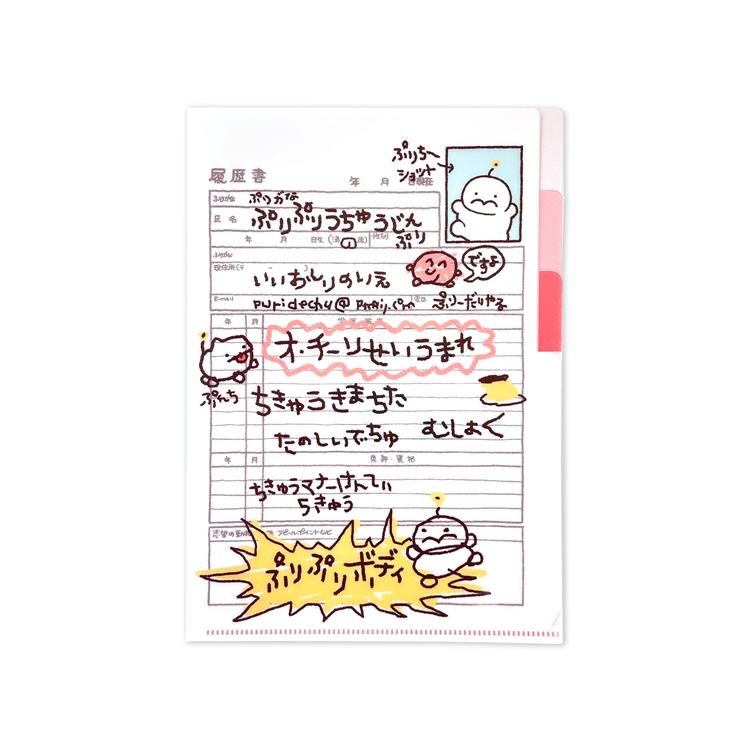 ぷりちー
ショット
履歴書
年 月 日現在
ふりがな
ぷりがな
氏名
ぷりぷりうちゅうじん
年 月 日生
性別
ぷり
ふりがな
現住所(〒
いいおしりのいえ
ですよ
E-mail
電話
ぷりーだいやる
年 月
オ・チーリせいうまれ
ぷんち
ちきゅうきまちた
たのしいでちゅ
むしょく
年 月 免許・資格
ちきゅうマナーけんてい
5きゅう
アピールポイントなど
ぷりぷりボディ